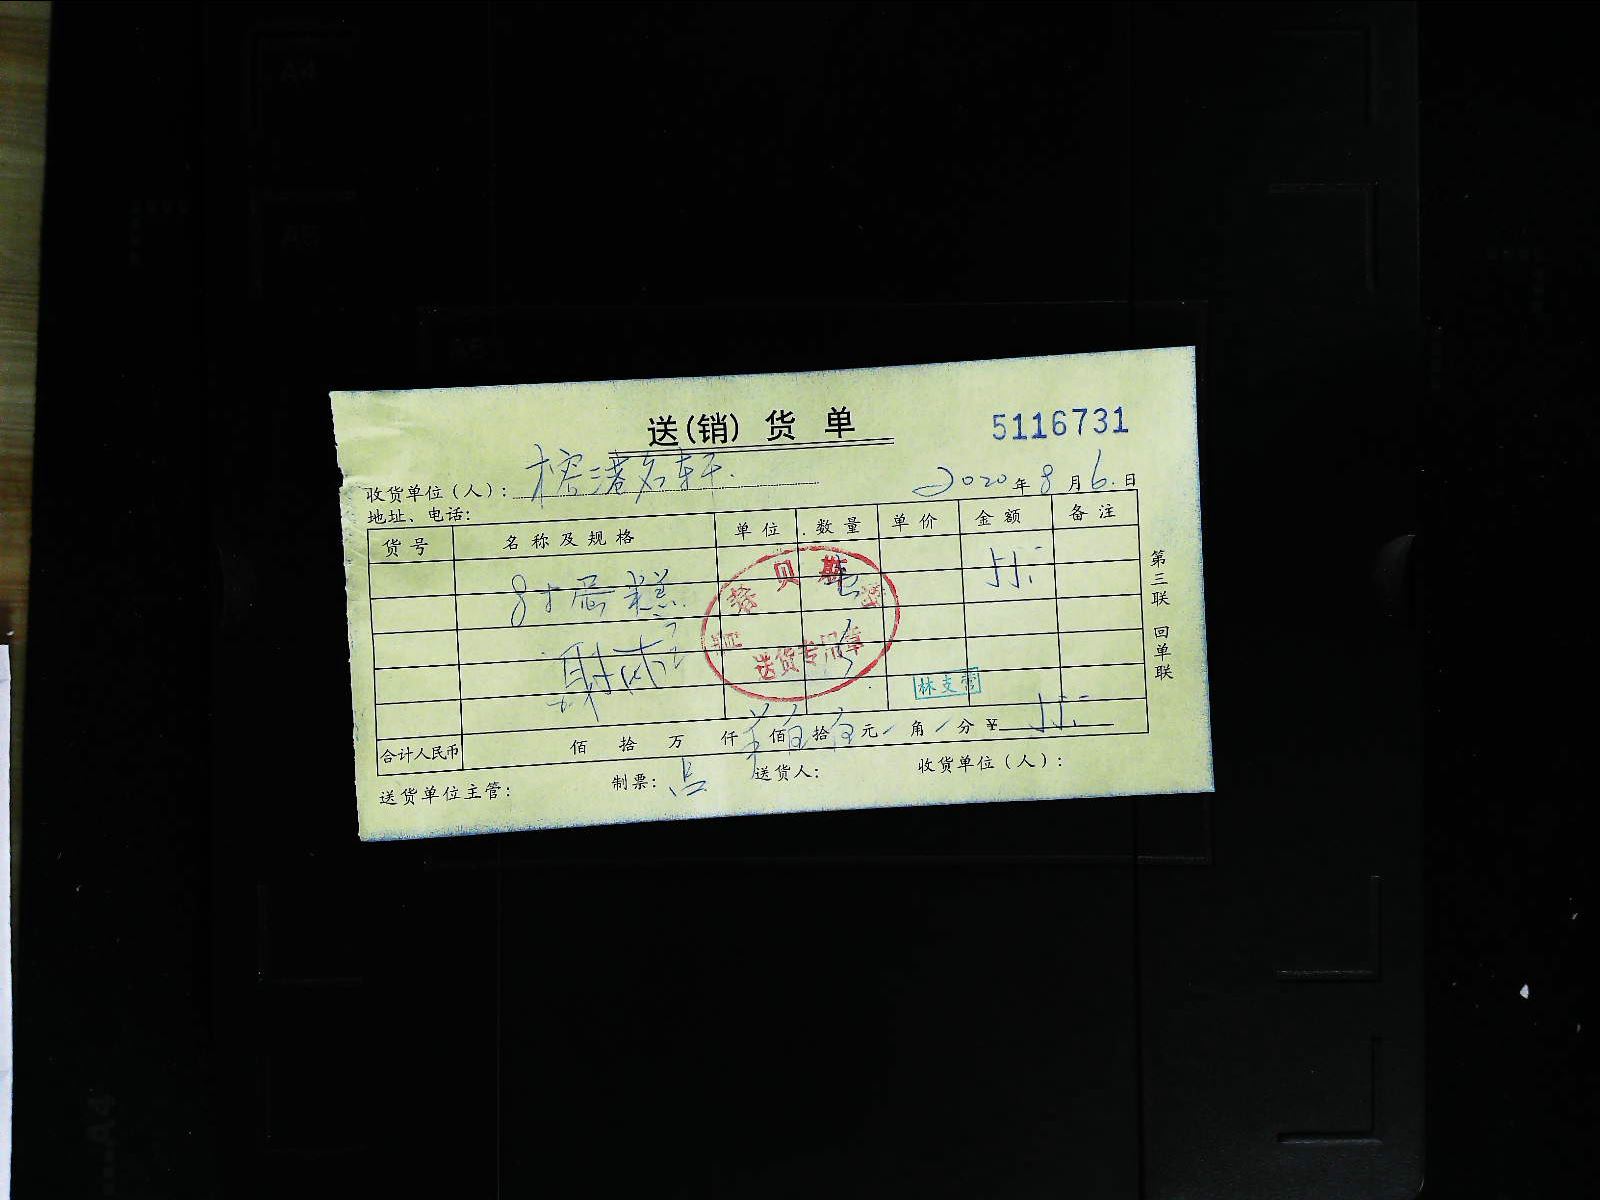 A4
A5
送(销)货单
5116731
收货单位(人): 榕港名轩
2020年8月6日
地址、电话:
货号 名称及规格 单位 数量 单价 金额 备注
8寸蛋糕
贝
送货专用章
林支营
合计人民币 佰 拾 万 仟 佰 拾 元 角 分 ¥
送货单位主管: 制票: 送货人: 收货单位(人):
第三联 回单联
A4